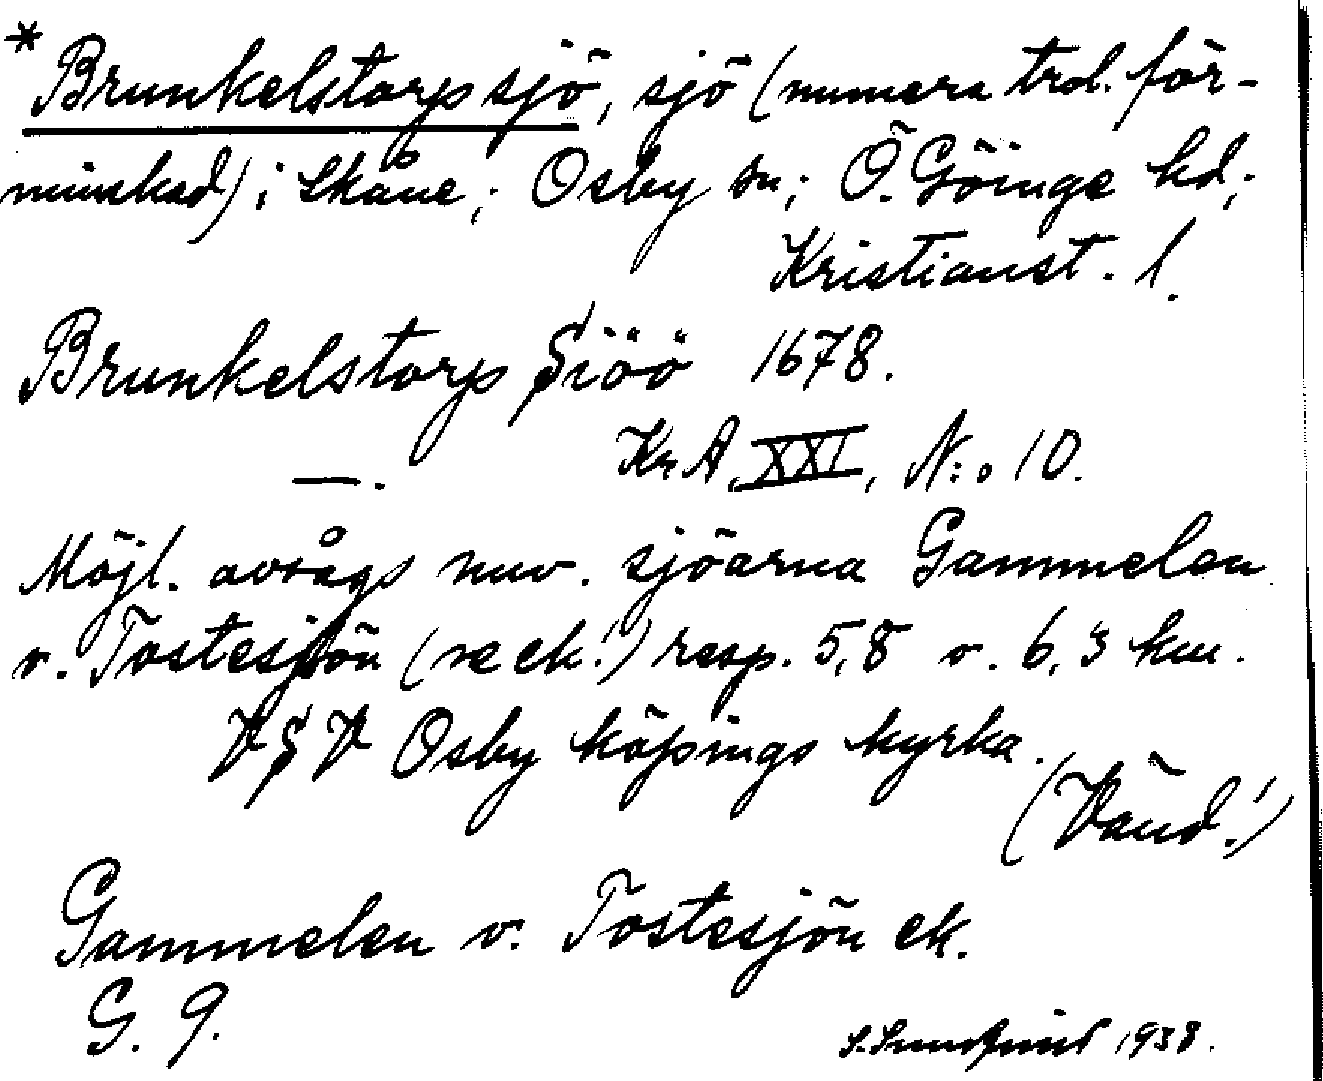 * Brunkelstorpsjö, sjö (numera trol. för-
minskad) i Skåne; Osby sn; Ö. Göinge hd;
Kristianst. l.
Brunkelstorp Siöö 1678.
KrA, XXI, N:o 10.
—.
Möjl. avsågs nuv. sjöarna Gammelen
o. Tostesjön (se ek.!) resp. 5,8 o. 6,3 km.
VSV Osby köpings kyrka.
(Vänd!)
Gammelen o. Tostesjön ek.
G. 9.
1938.